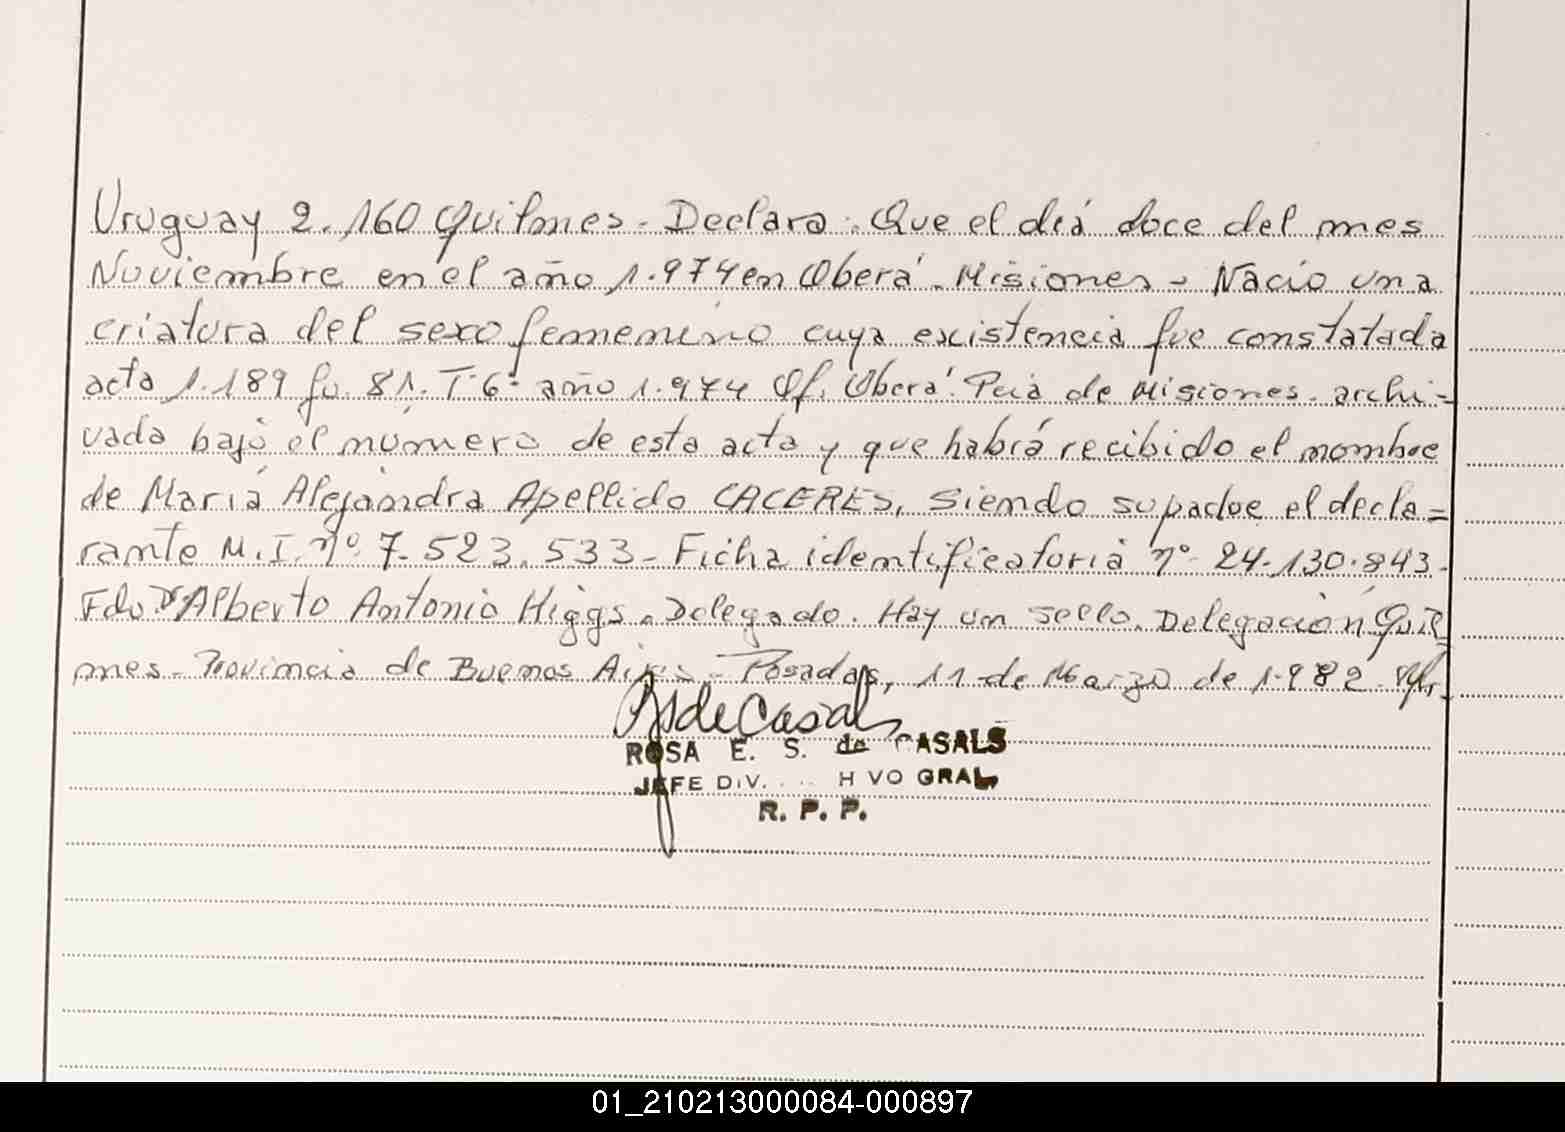 Uruguay 2.160 Quilmes - Declara: Que el día doce del mes
Noviembre en el año 1.974 en Oberá - Misiones - Nacio una
criatura del sexo femenino cuya existencia fue constatada
acta 1.189 fo. 81. T. 6º año 1.974 Of. Oberá. Pcia de Misiones. archi-
vada bajo el número de esta acta y que habrá recibido el nombre
de María Alejandra Apellido CACERES, Siendo su padre el decla=
rante M.I. nº 7.523.533 - Ficha identificatoria nº 24.130.843.
Fdo Alberto Antonio Higgs. Delegado. Hay un sello. Delegación Quil
mes - Provincia de Buenos Aires - Posadas, 11 de Marzo de 1.982.
RSdeCasals
ROSA E. S. de CASALS
JEFE DIV. H VO GRAL
R. P. P.
01_210213000084-000897